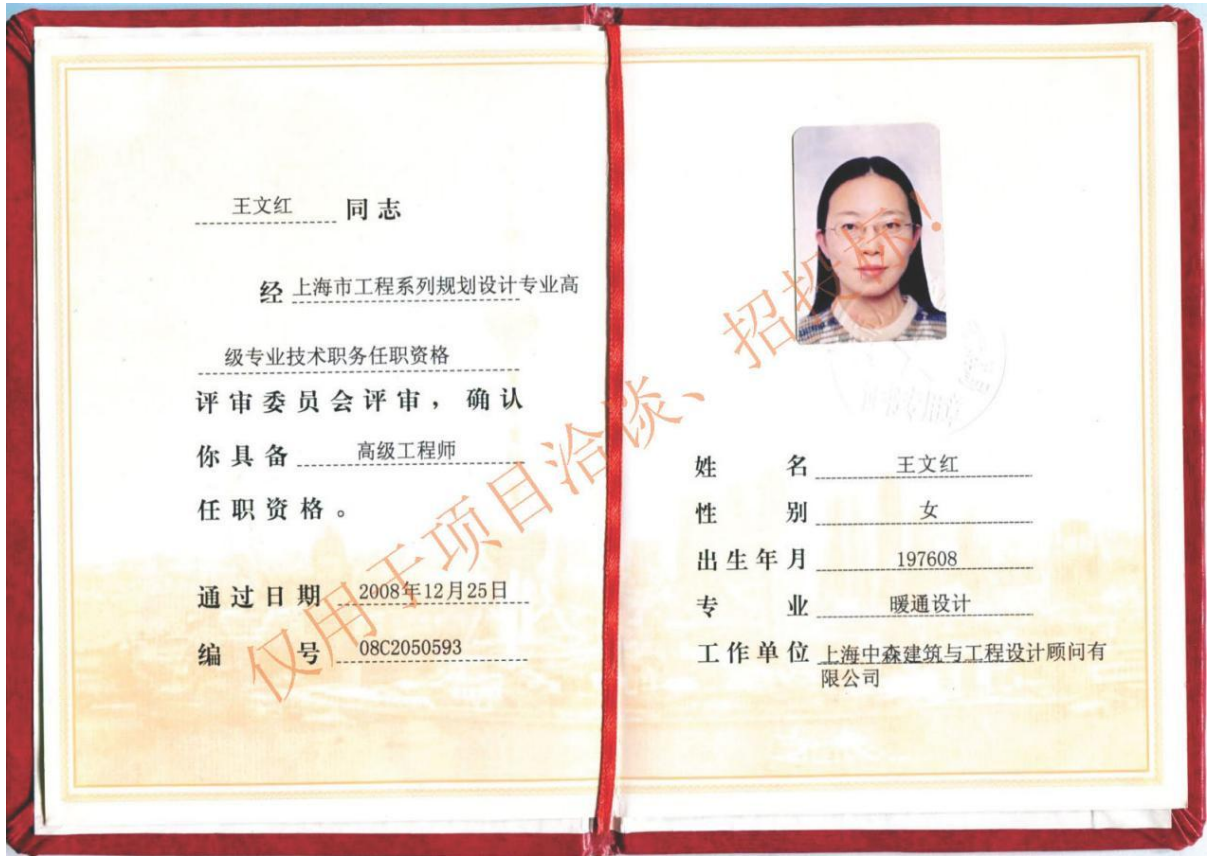 王文红 同志
经 上海市工程系列规划设计专业高
级专业技术职务任职资格
评审委员会评审，确认
你具备 高级工程师
任职资格。
通过日期 2008年12月25日
编 号 08C2050593
姓 名 王文红
性 别 女
出生年月 197608
专 业 暖通设计
工作单位 上海中森建筑与工程设计顾问有
限公司
仅用于项目洽谈、招投标！